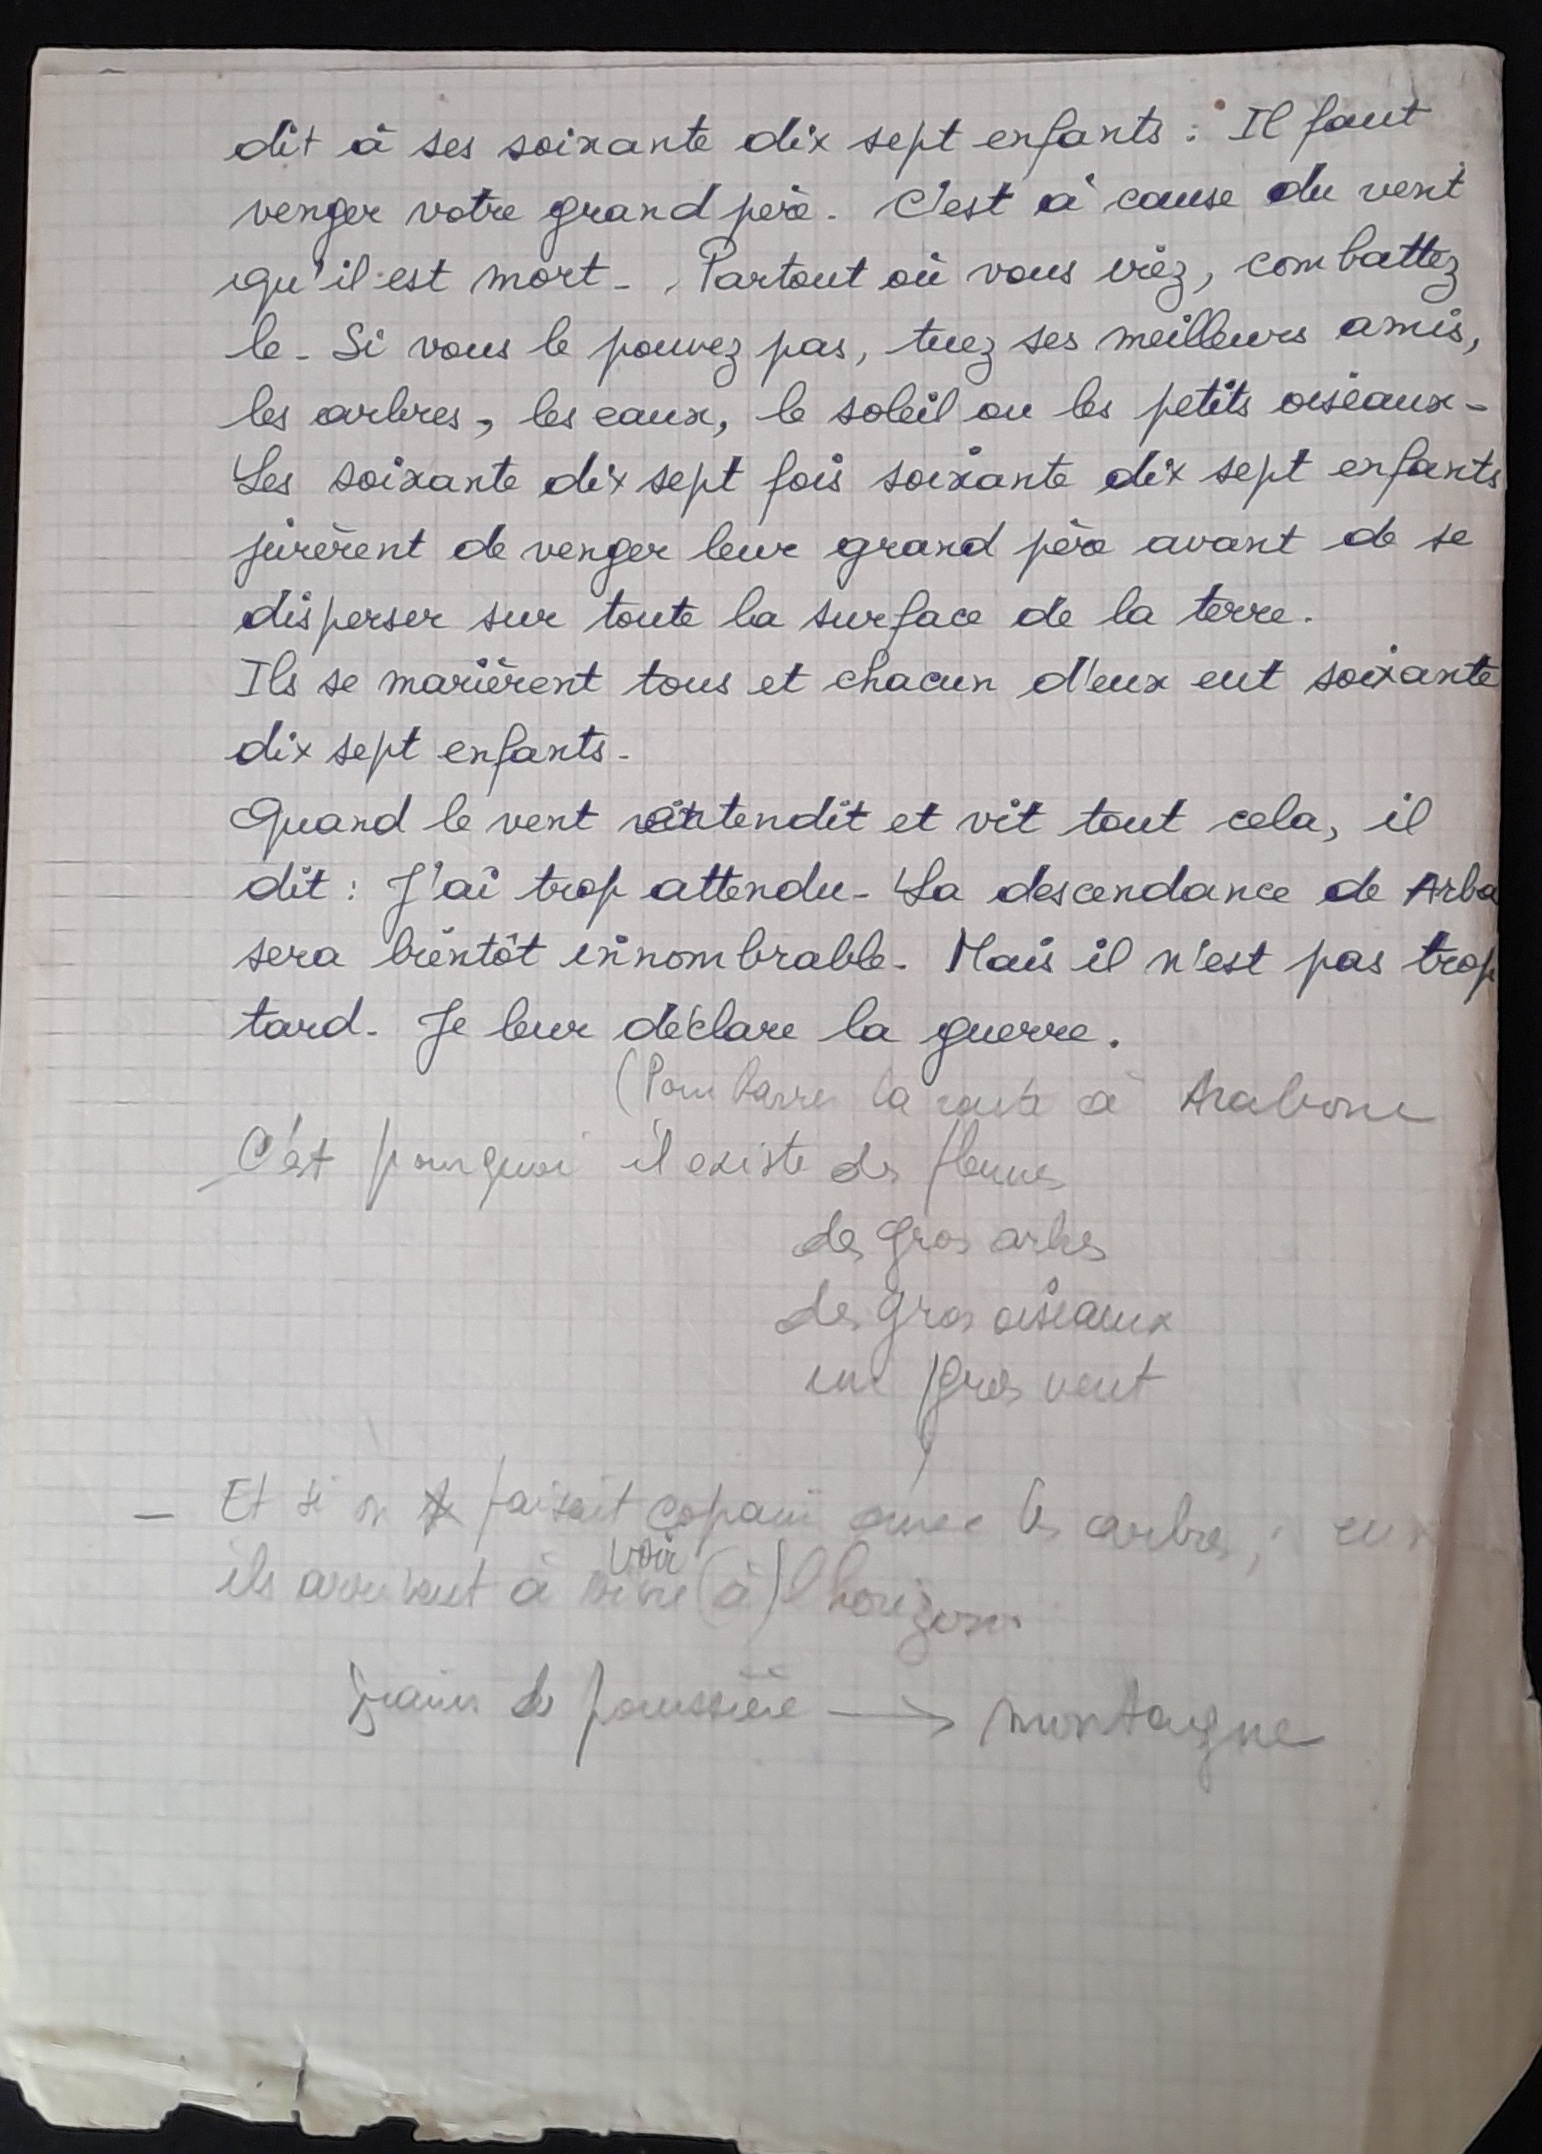 dit à ses soixante dix sept enfants : Il faut
venger votre grand père. C'est à cause du vent
qu'il est mort. Partout où vous irez, combattez
le. Si vous le pouvez pas, tuez ses meilleurs amis,
les arbres, les eaux, le soleil ou les petits oiseaux.
Les soixante dix sept fois soixante dix sept enfants
jurèrent de venger leur grand père avant de se
disperser sur toute la surface de la terre.
Ils se marièrent tous et chacun d'eux eut soixante
dix sept enfants.
Quand le vent entendit et vit tout cela, il
dit : J'ai trop attendu. La descendance de Arba
sera bientôt innombrable. Mais il n'est pas trop
tard. Je leur déclare la guerre.
(Pour barrer la route à
C'est pourquoi il existe des fleuves
des gros arbres
des gros oiseaux
un gros vent
– Et si on faisait copain avec les arbres,
voir
ils arrivent à vivre (à) l'horizon
grains de poussière → montagne